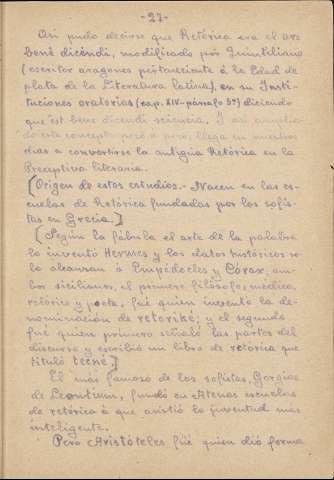 -27-
Así pudo decirse que Retórica era el ars
bené dicéndi, modificado por Quintiliano
(escritor aragonés perteneciente á la Edad de
plata de la Literatura latina), en su Insti-
tuciones oratorias (cap. XIV - párrafo 5º) diciendo
que est bene dicendi sciencia. Y así amplia-
do este concepto poco á poco, llega en nuestros
días a convertirse la antigua Retórica en la
Preceptiva literaria.
[Origen de estos estudios.- Nacen en las es-
cuelas de Retórica fundadas por los sofis-
tas en Grecia.]
[Según la fábula el arte de la palabra
lo inventó Hermes y los datos históricos so-
lo alcanzan á Empédocles y Córax, am-
bos sicilianos, el primero filósofo, médico,
retórico y poeta, fué quien inventó la de-
nominación de retoriké; y el segundo
fué quien primero señaló las partes del
discurso y escribió un libro de retorica que
tituló tecné.]
El más famoso de los sofistas, Gorgias
de Leontium, fundó en Atenas escuelas
de retórica á que asistió la juventud más
inteligente.
Pero Aristóteles fué quien dió forma